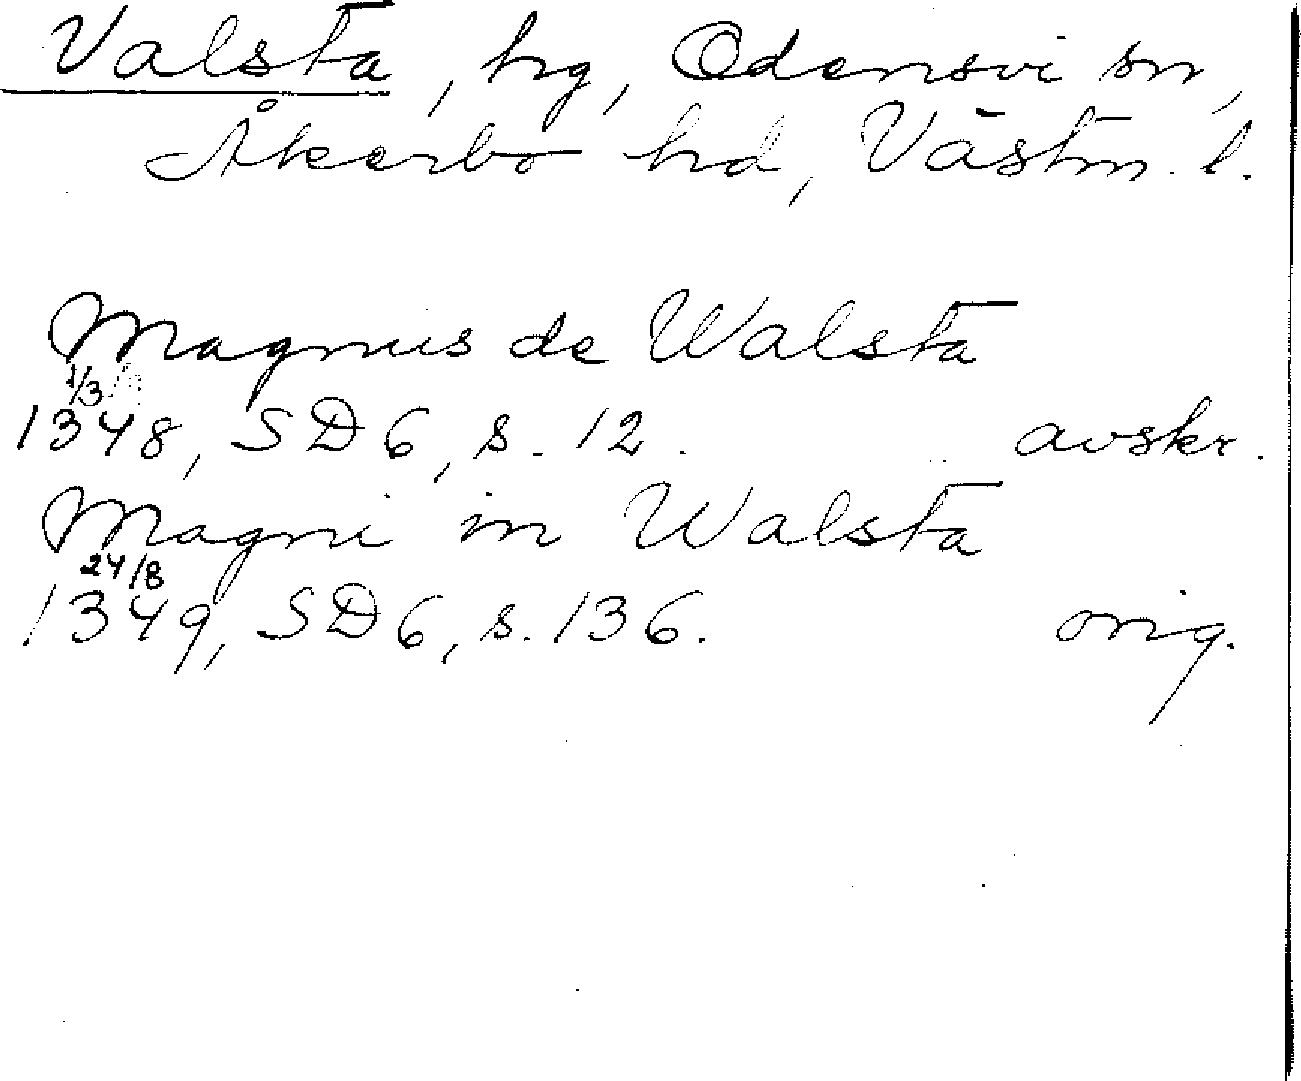 Valsta, hg, Odensvi sn,
Åkerbo hd, Västm. l.
Magnus de Walsta
1/3
1348, SD 6, s. 12. avskr.
Magni in Walsta
24/8
1349, SD 6, s. 136. orig.